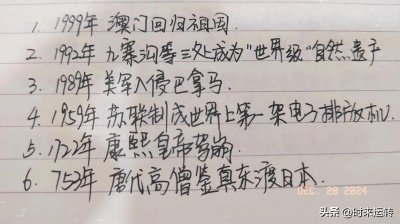 1. 1999年 澳门回归祖国.
2. 1992年 九寨沟等三处成为"世界级"自然遗产
3. 1989年 美军入侵巴拿马.
4. 1959年 苏联制成世界上第一架电子排放机.
5. 1722年 康熙皇帝驾崩.
6. 753年 唐代高僧鉴真东渡日本.
DEC. 20 2024
头条 @时来运转